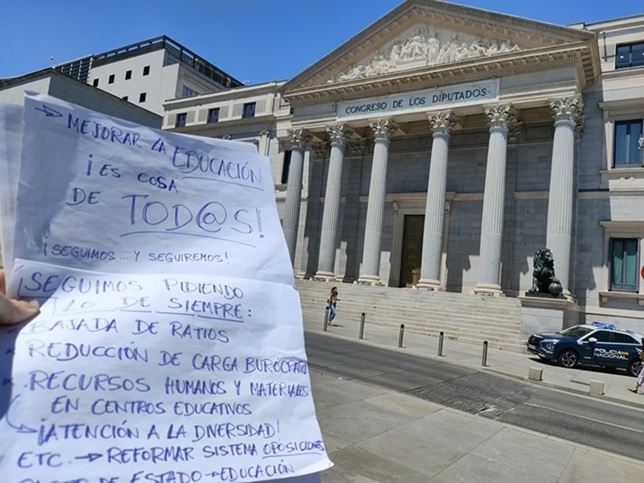 → MEJORAR LA EDUCACIÓN
¡ES COSA
DE TOD@S!
¡SEGUIMOS... Y SEGUIREMOS!
¡SEGUIMOS PIDIENDO
LO DE SIEMPRE:
BAJADA DE RATIOS
REDUCCIÓN DE CARGA
RECURSOS HUMANOS Y MATERIALES
EN CENTROS EDUCATIVOS
→ ¡ATENCIÓN A LA DIVERSIDAD!
ETC. → REFORMAR SISTEMA OPOSICIONES
DE ESTADO → EDUCACIÓN
CONGRESO DE LOS DIPUTADOS
POLICIA
NACIONAL